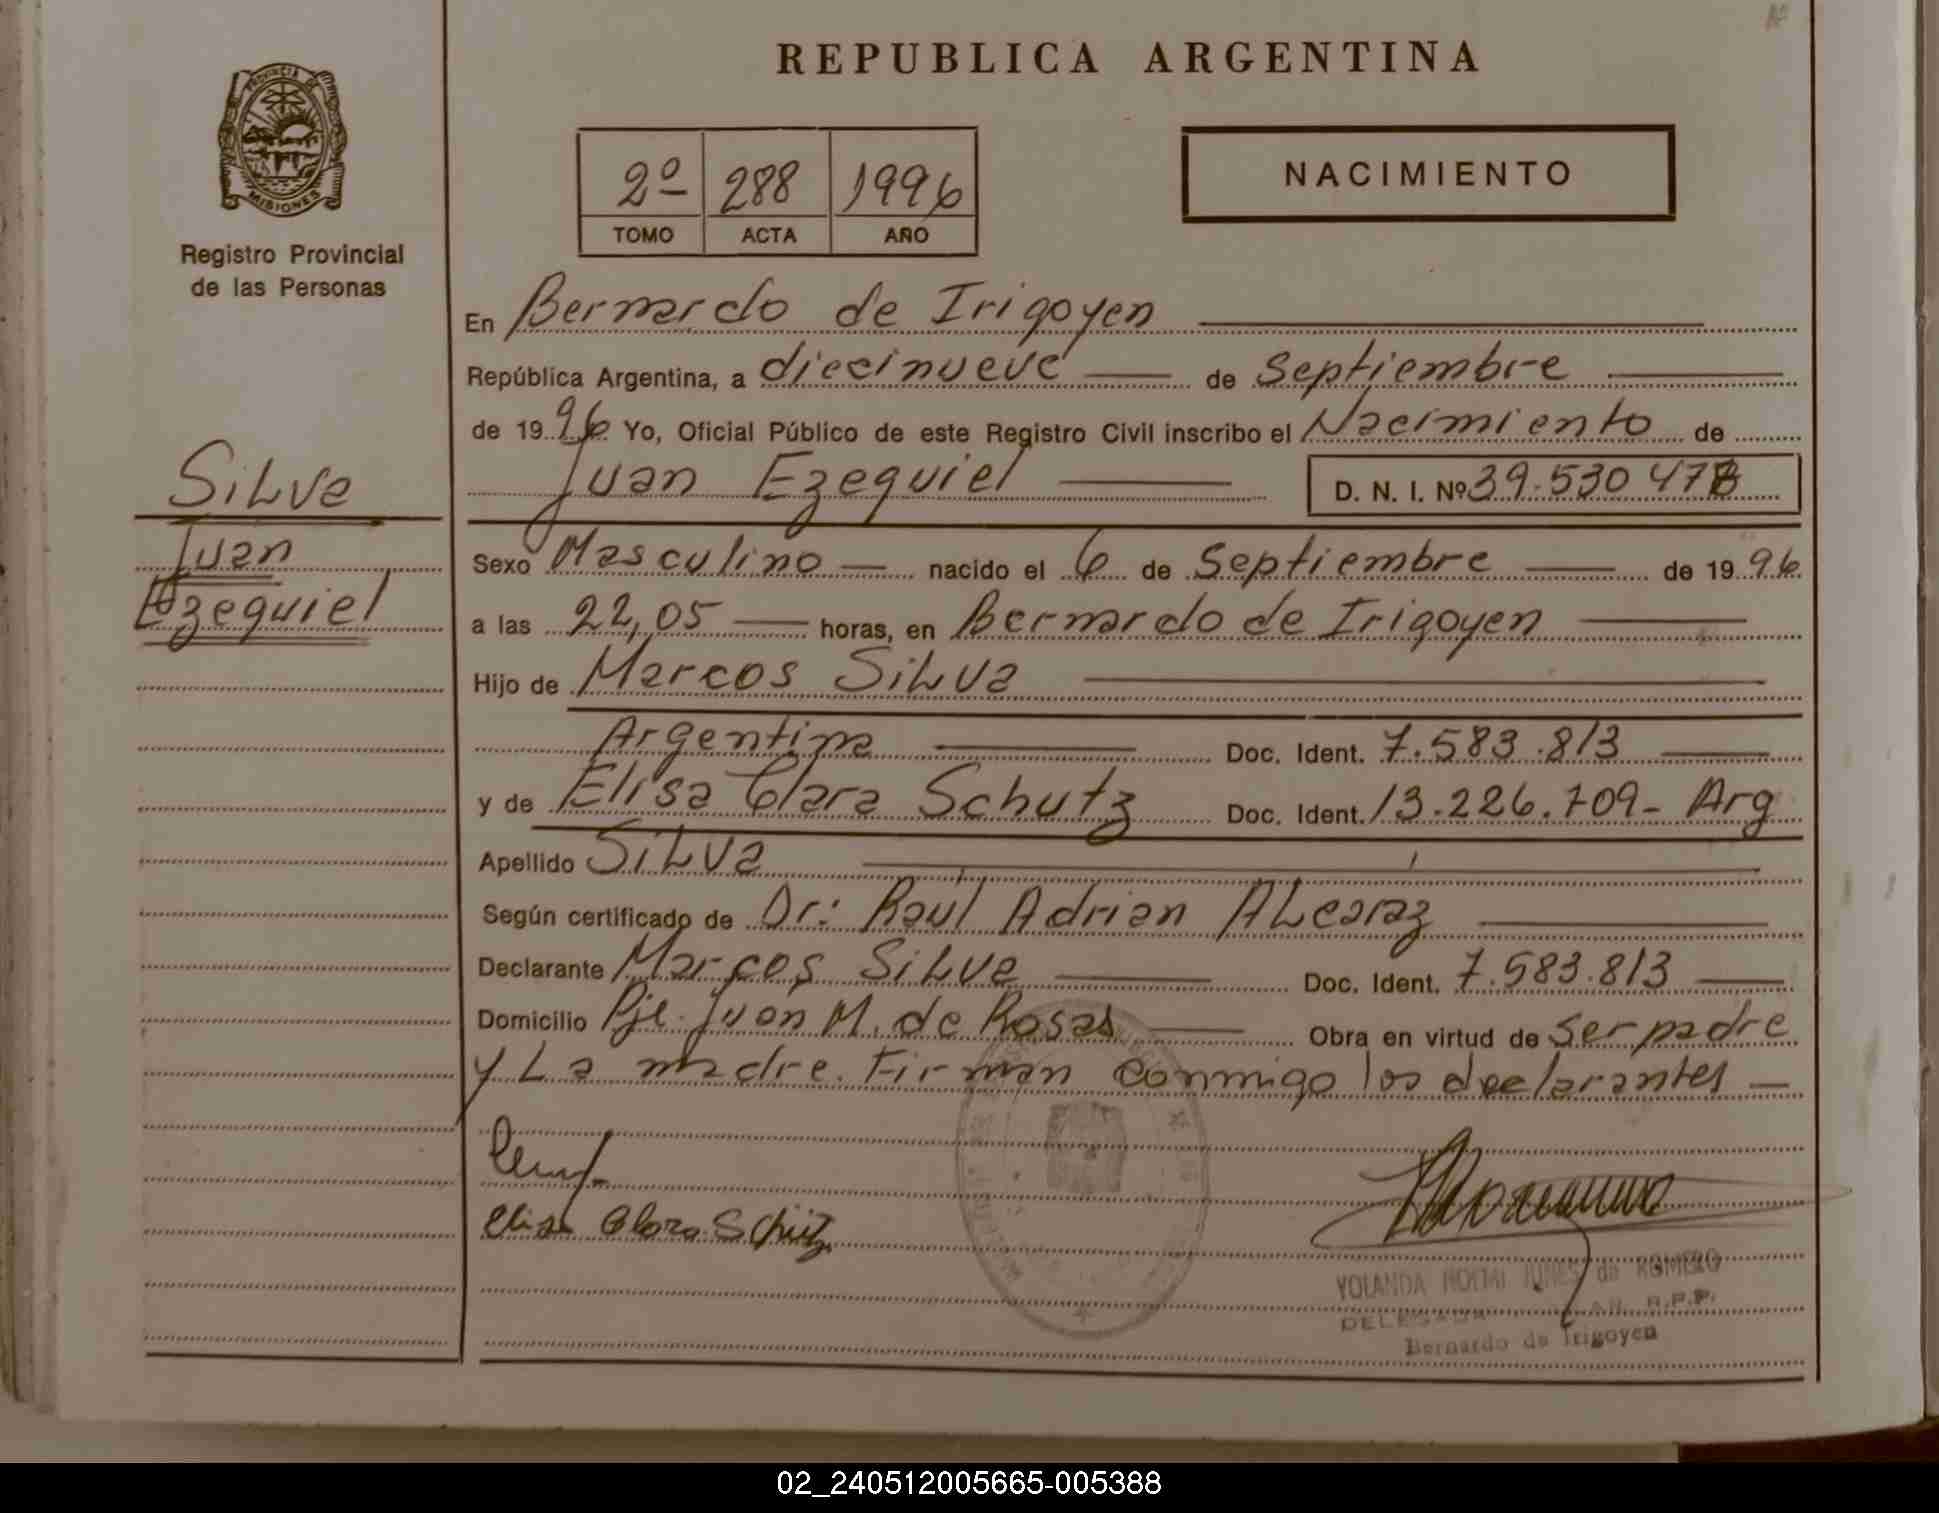 REPUBLICA ARGENTINA
PROVINCIA DE
MISIONES
Registro Provincial
de las Personas
2º 288 1996
TOMO ACTA AÑO
NACIMIENTO
En Bernardo de Irigoyen
República Argentina, a diecinueve de Septiembre
de 1996 Yo, Oficial Público de este Registro Civil inscribo el Nacimiento de
Juan Ezequiel D. N. I. Nº 39.530 478
Silva
Juan
Ezequiel
Sexo Masculino nacido el 6 de Septiembre de 1996
a las 22,05 horas, en Bernardo de Irigoyen
Hijo de Marcos Silva
Argentina Doc. Ident. 7.583.813
y de Elisa Clara Schutz Doc. Ident. 13.226.709- Arg
Apellido Silva
Según certificado de Dr: Raúl Adrian Alcaraz
Declarante Marcos Silva Doc. Ident. 7.583.813
Domicilio Pje. Juan M. de Rosas Obra en virtud de ser padre
y La madre. Firman conmigo los declarantes
Elisa Clara Schütz
YOLANDA de ROMERO
DELEGADA R.P.P.
Bernardo de Irigoyen
02_240512005665-005388